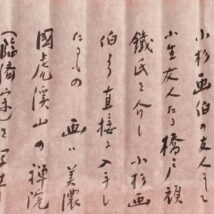 小杉画伯の友人にして
小生友人たる橋戸頑
鐵氏を介し小杉画
伯より直接に入手し
たるもの 画ハ美濃
國虎溪山の禅院
(臨済宗)を写生